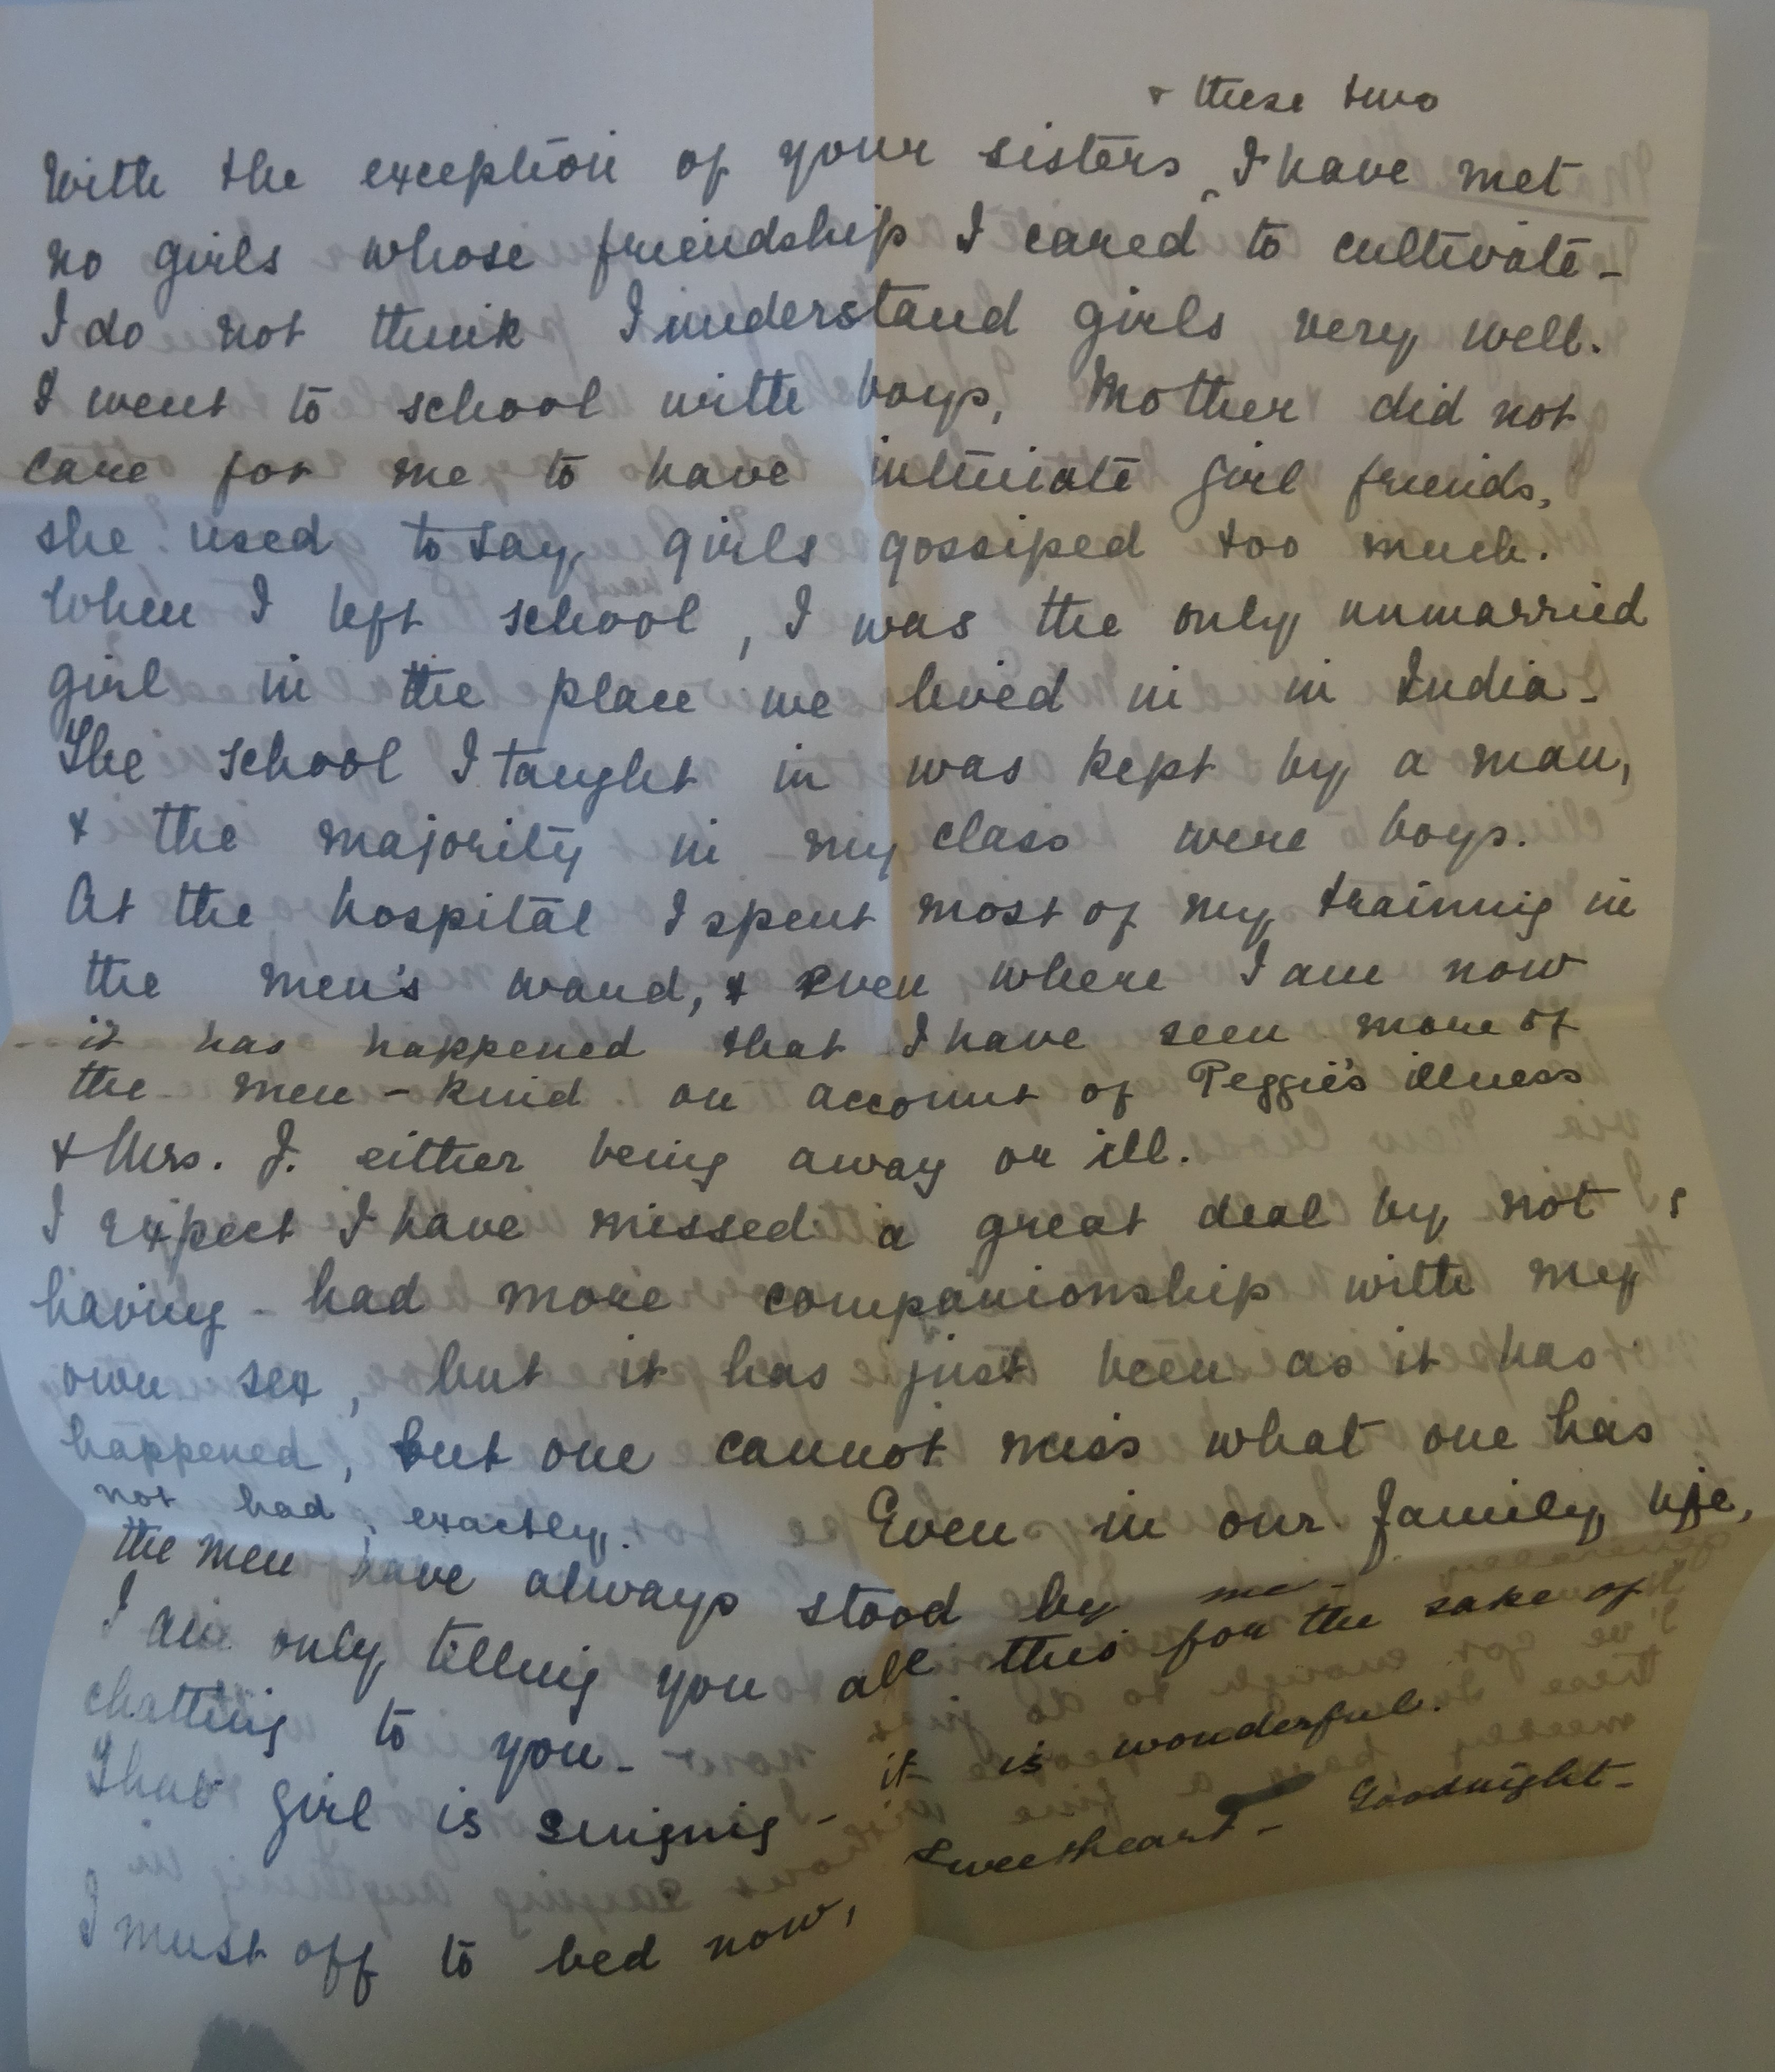 & these two
With the exception of your sisters ‸ I have met
no girls whose friendship I cared to cultivate -
I do not think I understand girls very well.
I went to school with boys, Mother did not
care for me to have intimate girl friends,
she used to say, girls gossiped too much.
When I left school, I was the only unmarried
girl in the place we lived in in India -
The school I taught in was kept by a man,
& the majority in my class were boys.
At the hospital I spent most of my training in
the men's ward, & even where I am now
it has happened that I have seen more of
the men-kind on account of Peggie's illness
& Mrs. J. either being away or ill.
I expect I have missed a great deal by not
having had more companionship with my
own sex, but it has just been as it has
happened, but one cannot miss what one has
not had, exactly. Even in our family life,
the men have always stood by me -
I am only telling you all this for the sake of
chatting to you -
That girl is singing - it is wonderful.
I must off to bed now, Sweetheart - Goodnight -